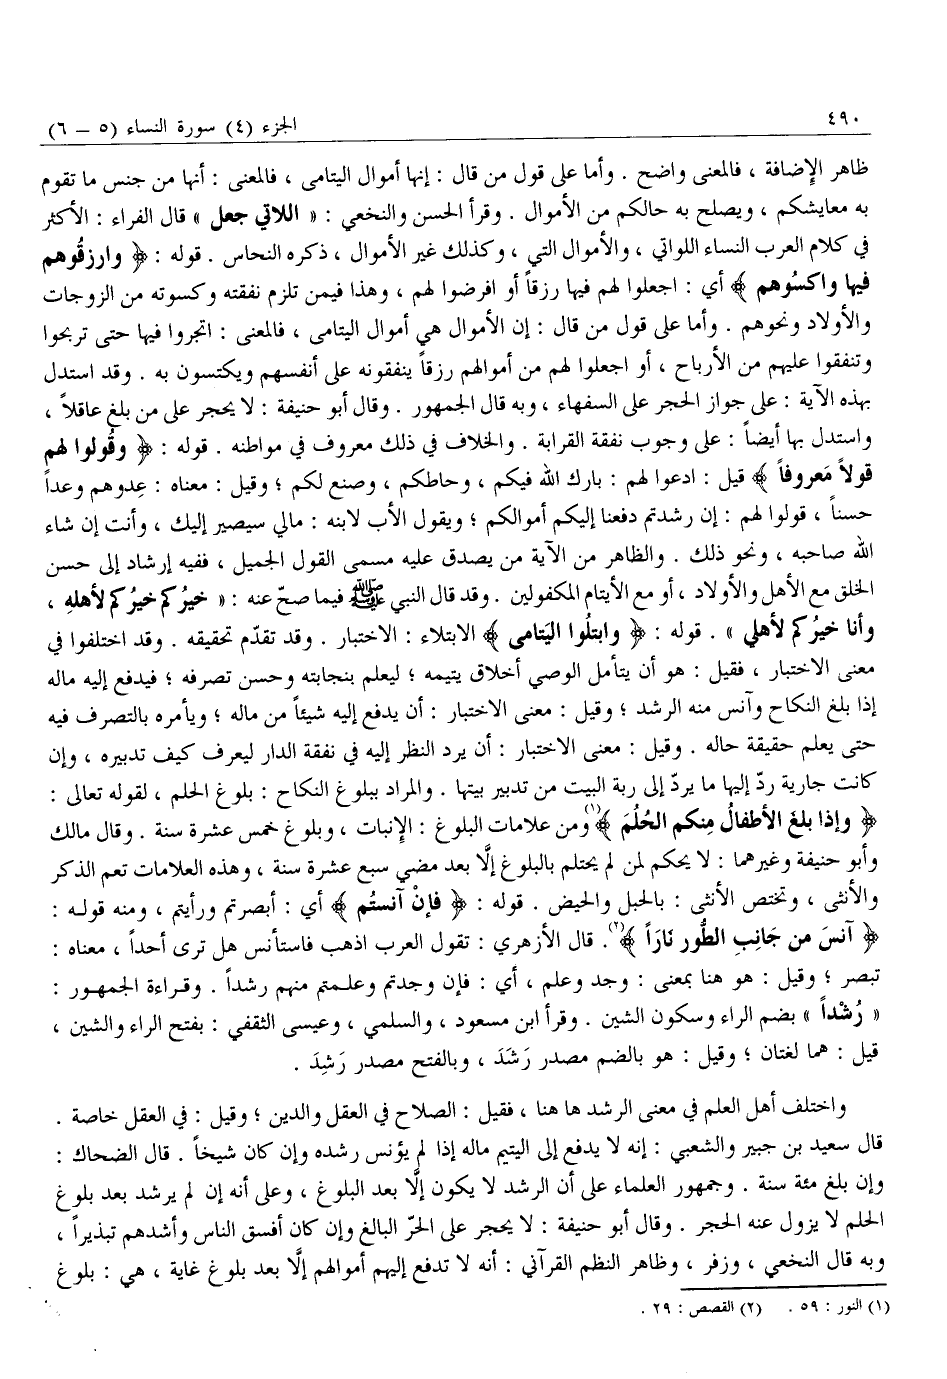 ٤٩٠
الجزء (٤) سورة النساء (٥ – ٦)
ظاهر الإضافة ، فالمعنى واضح . وأما على قول من قال : إنها أموال اليتامى ، فالمعنى : أنها من جنس ما تقوم
به معايشكم ، ويصلح به حالكم من الأموال . وقرأ الحسن والنخعي : « اللاتي جعل » قال الفراء : الأكثر
في كلام العرب النساء اللواتي ، والأموال التي ، وكذلك غير الأموال ، ذكره النحاس . قوله : ﴿ وارزقُوهم
فيها واكسُوهم ﴾ أي : اجعلوا لهم فيها رزقاً أو افرضوا لهم ، وهذا فيمن تلزم نفقته وكسوته من الزوجات
والأولاد ونحوهم . وأما على قول من قال : إن الأموال هي أموال اليتامى ، فالمعنى : اتجروا فيها حتى تربحوا
وتنفقوا عليهم من الأرباح ، أو اجعلوا لهم من أموالهم رزقاً ينفقونه على أنفسهم ويكتسون به . وقد استدل
بهذه الآية : على جواز الحجر على السفهاء ، وبه قال الجمهور . وقال أبو حنيفة : لا يحجر على من بلغ عاقلاً ،
واستدل بها أيضاً : على وجوب نفقة القرابة . والخلاف في ذلك معروف في مواطنه . قوله : ﴿ وقُولوا لهم
قولاً مَعروفاً ﴾ قيل : ادعوا لهم : بارك الله فيكم ، وحاطكم ، وصنع لكم ؛ وقيل : معناه : عِدوهم وعداً
حسناً ، قولوا لهم : إن رشدتم دفعنا إليكم أموالكم ؛ ويقول الأب لابنه : مالي سيصير إليك ، وأنت إن شاء
الله صاحبه ، ونحو ذلك . والظاهر من الآية من يصدق عليه مسمى القول الجميل ، ففيه إرشاد إلى حسن
الخلق مع الأهل والأولاد ، أو مع الأيتام المكفولين . وقد قال النبي ﷺ فيما صحّ عنه : « خيرُكم خيرُكم لأهلهِ ،
وأنا خيرُكم لأهلي » . قوله : ﴿ وابتلُوا اليَتامى ﴾ الابتلاء : الاختبار . وقد تقدّم تحقيقه . وقد اختلفوا في
معنى الاختبار ، فقيل : هو أن يتأمل الوصي أخلاق يتيمه ؛ ليعلم بنجابته وحسن تصرفه ؛ فيدفع إليه ماله
إذا بلغ النكاح وآنس منه الرشد ؛ وقيل : معنى الاختبار : أن يدفع إليه شيئاً من ماله ؛ ويأمره بالتصرف فيه
حتى يعلم حقيقة حاله . وقيل : معنى الاختبار : أن يرد النظر إليه في نفقة الدار ليعرف كيف تدبيره ، وإن
كانت جارية ردّ إليها ما يردّ إلى ربة البيت من تدبير بيتها . والمراد ببلوغ النكاح : بلوغ الحلم ، لقوله تعالى :
﴿ وإذا بلغ الأطفالُ مِنكم الحُلُمَ ﴾(١) ومن علامات البلوغ : الإنبات ، وبلوغ خمس عشرة سنة . وقال مالك
وأبو حنيفة وغيرهما : لا يحكم لمن لم يحتلم بالبلوغ إلَّا بعد مضي سبع عشرة سنة ، وهذه العلامات تعم الذكر
والأنثى ، وتختص الأنثى : بالحبل والحيض . قوله : ﴿ فإنْ آنستُم ﴾ أي : أبصرتم ورأيتم ، ومنه قوله :
﴿ آنسَ من جَانبِ الطُّور نَارَاً ﴾(٢). قال الأزهري : تقول العرب اذهب فاستأنس هل ترى أحداً ، معناه :
تبصر ؛ وقيل : هو هنا بمعنى : وجد وعلم ، أي : فإن وجدتم وعلمتم منهم رشداً . وقراءة الجمهور :
« رُشْداً » بضم الراء وسكون الشين . وقرأ ابن مسعود ، والسلمي ، وعيسى الثقفي : بفتح الراء والشين ،
قيل : هما لغتان ؛ وقيل : هو بالضم مصدر رَشَدَ ، وبالفتح مصدر رَشِدَ .
واختلف أهل العلم في معنى الرشد ها هنا ، فقيل : الصلاح في العقل والدين ؛ وقيل : في العقل خاصة .
قال سعيد بن جبير والشعبي : إنه لا يدفع إلى اليتيم ماله إذا لم يؤنس رشده وإن كان شيخاً . قال الضحاك :
وإن بلغ مئة سنة . وجمهور العلماء على أن الرشد لا يكون إلَّا بعد البلوغ ، وعلى أنه إن لم يرشد بعد بلوغ
الحلم لا يزول عنه الحجر . وقال أبو حنيفة : لا يحجر على الحرّ البالغ وإن كان أفسق الناس وأشدهم تبذيراً ،
وبه قال النخعي ، وزفر ، وظاهر النظم القرآني : أنه لا تدفع إليهم أموالهم إلَّا بعد بلوغ غاية ، هي : بلوغ
(١) النور : ٥٩ . (٢) القصص : ٢٩ .